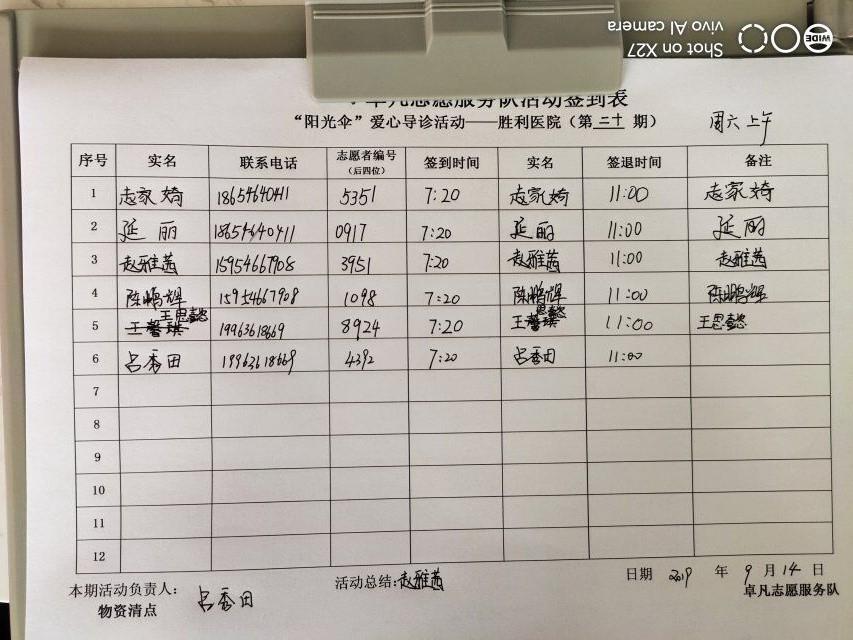 Shot on X27
vivo AI camera
WIDE
卓凡志愿服务队活动签到表
“阳光伞”爱心导诊活动——胜利医院（第 三十 期） 周六上午
序号 实名 联系电话 志愿者编号（后四位） 签到时间 实名 签退时间 备注
1 18654640411 5351 7:20 11:00
2 延丽 18654640411 0917 7:20 延丽 11:00 延丽
3 赵雅茜 15954667908 3951 7:20 赵雅茜 11:00 赵雅茜
4 陈鹏辉 15954667908 1098 7:20 陈鹏辉 11:00 陈鹏辉
5 王思懿 19963618669 8924 7:20 王思懿 11:00 王思懿
6 吕秀田 19963618669 4392 7:20 吕秀田 11:00
7
8
9
10
11
12
本期活动负责人： 吕秀田 活动总结:赵雅茜 日期 2019 年 9 月 14 日
物资清点 卓凡志愿服务队